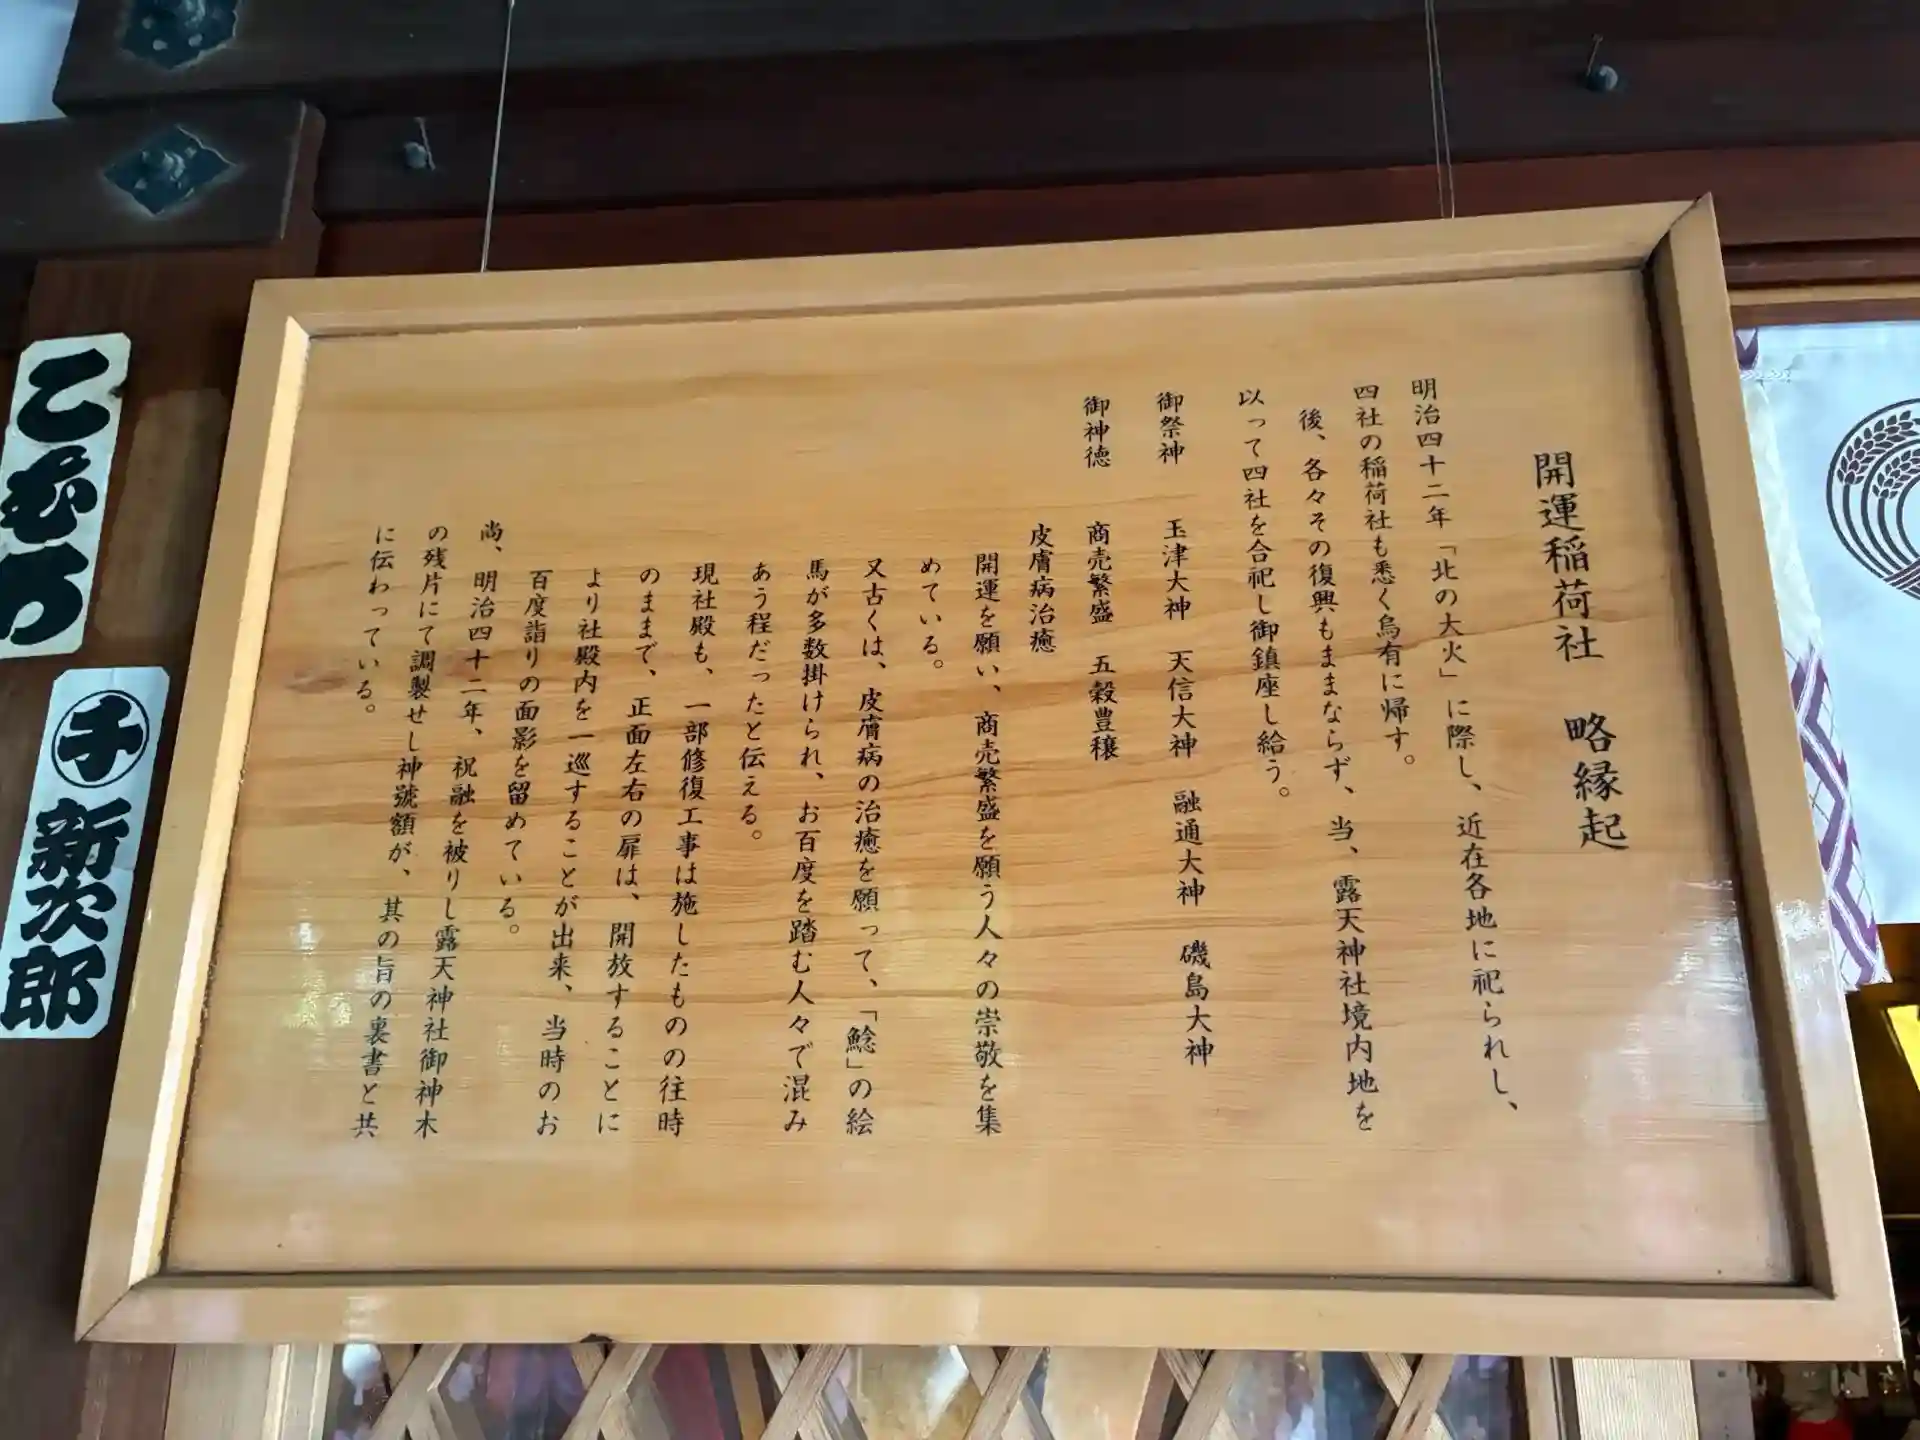 開運稲荷社　略縁起
明治四十二年「北の大火」に際し、近在各地に祀られし、
四社の稲荷社も悉く烏有に帰す。
後、各々その復興もままならず、当、露天神社境内地を
以って四社を合祀し御鎮座し給う。
御祭神　玉津大神　天信大神　融通大神　磯島大神
御神徳　商売繁盛　五穀豊穣
皮膚病治癒
開運を願い、商売繁盛を願う人々の崇敬を集
めている。
又古くは、皮膚病の治癒を願って、「鯰」の絵
馬が多数掛けられ、お百度を踏む人々で混み
あう程だったと伝える。
現社殿も、一部修復工事は施したものの往時
のままで、正面左右の扉は、開放することに
より社殿内を一巡することが出来、当時のお
百度詣りの面影を留めている。
尚、明治四十二年、祝融を被りし露天神社御神木
の残片にて調製せし神號額が、其の旨の裏書と共
に伝わっている。
こむら
千
新次郎